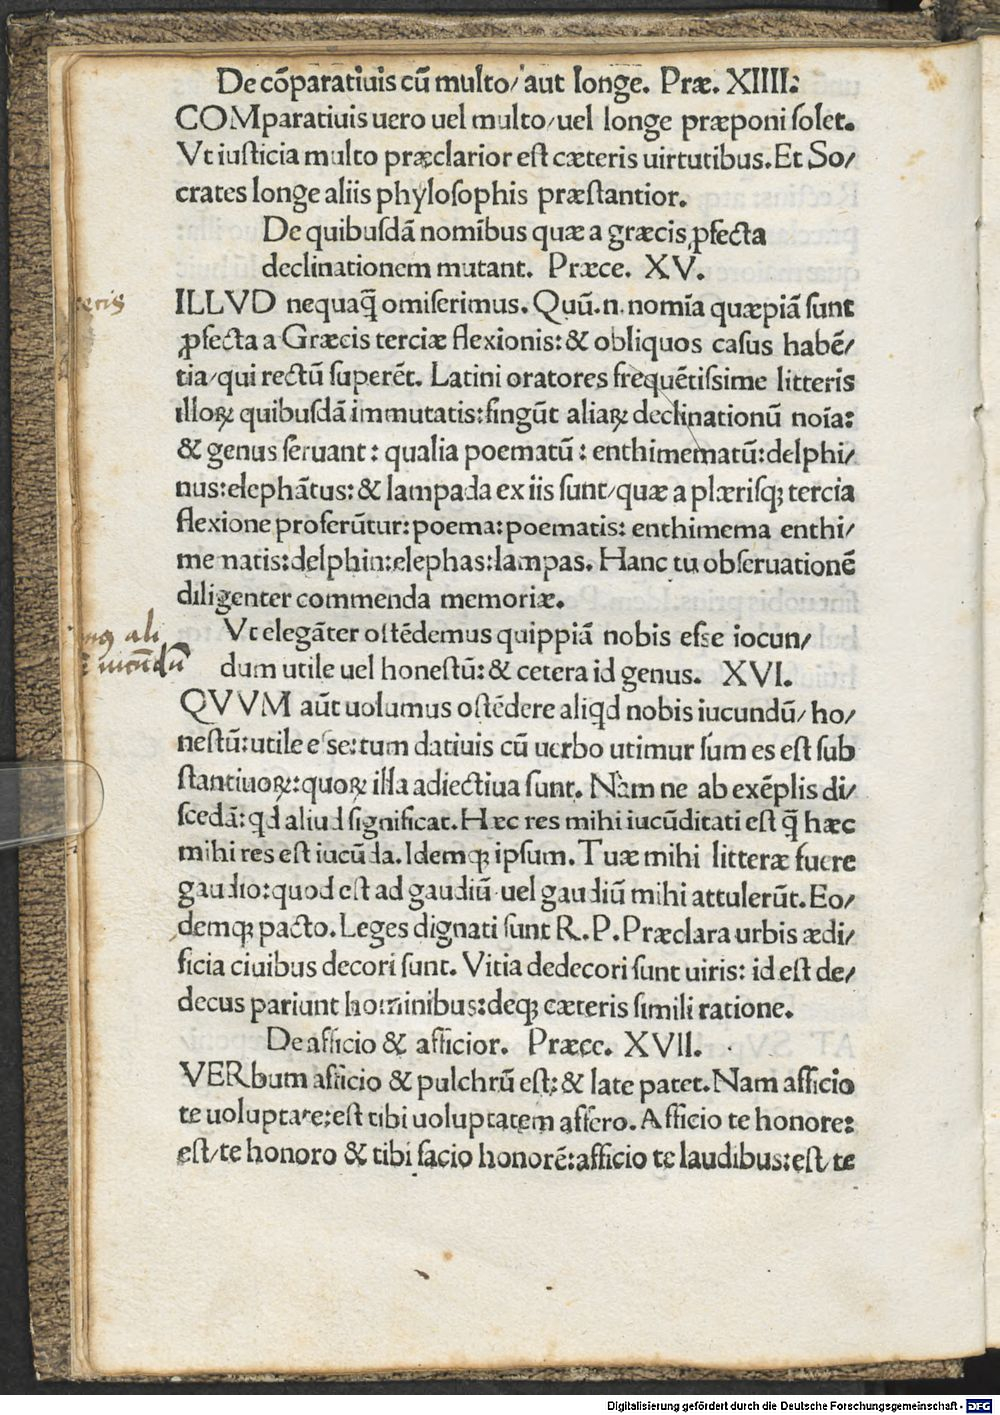 De cōparatiuis cū multo/ aut longe. Præ. XIIII.
COMparatiuis uero uel multo/uel longe præponi solet.
Vt iusticia multo præclarior est cæteris uirtutibus. Et So/
crates longe aliis phylosophis præstantior.
De quibusdā nominbus quæ a græcis ꝓfecta
declinationem mutant. Præce. XV.
ILLVD nequaq̄ omiserimus. Quū.n. nomīa quæpiā sunt
ꝓfecta a Græcis terciæ flexionis: & obliquos casus habē/
tia/qui rectū superēt. Latini oratores frequētissime litteris
illoꝝ quibusdā immutatis: singūt aliaꝝ declinationū noīa:
& genus seruant: qualia poematū: enthimematū: delphi/
nus: elephātus: & lampada ex iis sunt/quæ a plærisqꝫ tercia
flexione proferūtur: poema: poematis: enthimema enthi/
me natis: delphin: elephas: lampas. Hanc tu obseruationē
diligenter commenda memoriæ.
Vt elegāter ostēdemus quippiā nobis esse iocun/
dum utile uel honestū: & cetera id genus. XVI.
QVVM aūt uolumus ostēdere aliqd nobis iucundū/ ho/
nestū: utile esse: tum datiuis cū uerbo utimur sum es est sub
stantiuoꝝ: quoꝝ illa adiectiua sunt. Nam ne ab exēplis di/
scedā: qd aliud significat. Hæc res mihi iucūditati est q̄ hæc
mihi res est iucūda. Idemqꝫ ipsum. Tuæ mihi litteræ fuere
gaudio: quod est ad gaudiū uel gaudiū mihi attulerūt. Eo/
demqꝫ pacto. Leges dignati sunt R. P. Præclara urbis ædi/
ficia ciuibus decori sunt. Vitia dedecori sunt uiris: id est de/
decus pariunt hominibus: deqꝫ cæteris simili ratione.
De afficio & afficior. Præce. XVII.
VERbum afficio & pulchrū est: & late patet. Nam afficio
te uoluptate: est tibi uoluptatem affero. Afficio te honore:
est/te honoro & tibi facio honorē: afficio te laudibus: est/te
ali
iucūdū
Digitalisierung gefördert durch die Deutsche Forschungsgemeinschaft - DFG